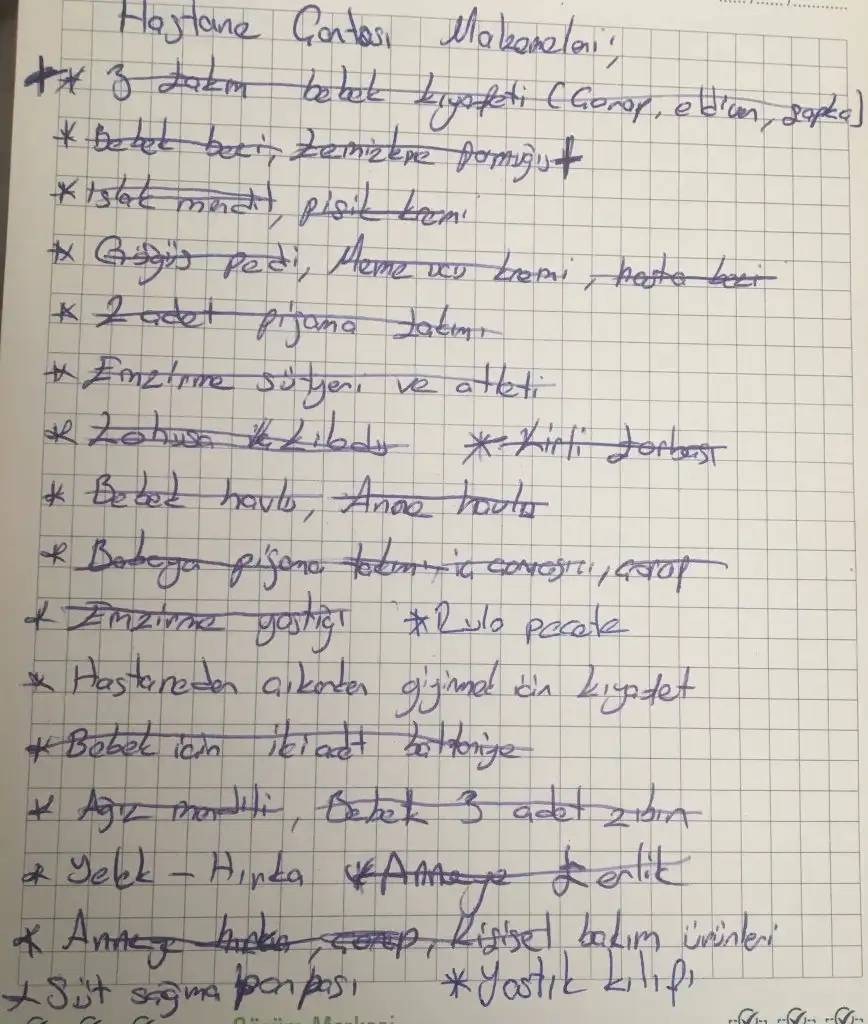 Hastane Çantası Malzemeleri;
* 3 takım bebek kıyafeti (Çorap, eldiven, şapka)
* Bebek bezi, temizleme pamuğu +
* Islak mendil, pişik kremi
* Göğüs pedi, Meme ucu kremi, hasta bezi
* 2 adet pijama takımı
* Emzirme sütyeni ve atleti
* Lohusa külodu * Kirli torbası
* Bebek havlu, Anne havlu
* Babaya pijama takımı, iç çamaşırı, çorap
* Emzirme yastığı * Rulo peçete
* Hastaneden çıkarken giyinmek için kıyafet
* Bebek için iki adt battaniye
* Ağız mendili, Bebek 3 adet zıbın
* Yelek - Hırka * Anneye terlik
* Anneye hırka, çorap, Kişisel bakım ürünleri
* Süt sağma ponpası * Yastık kılıfı